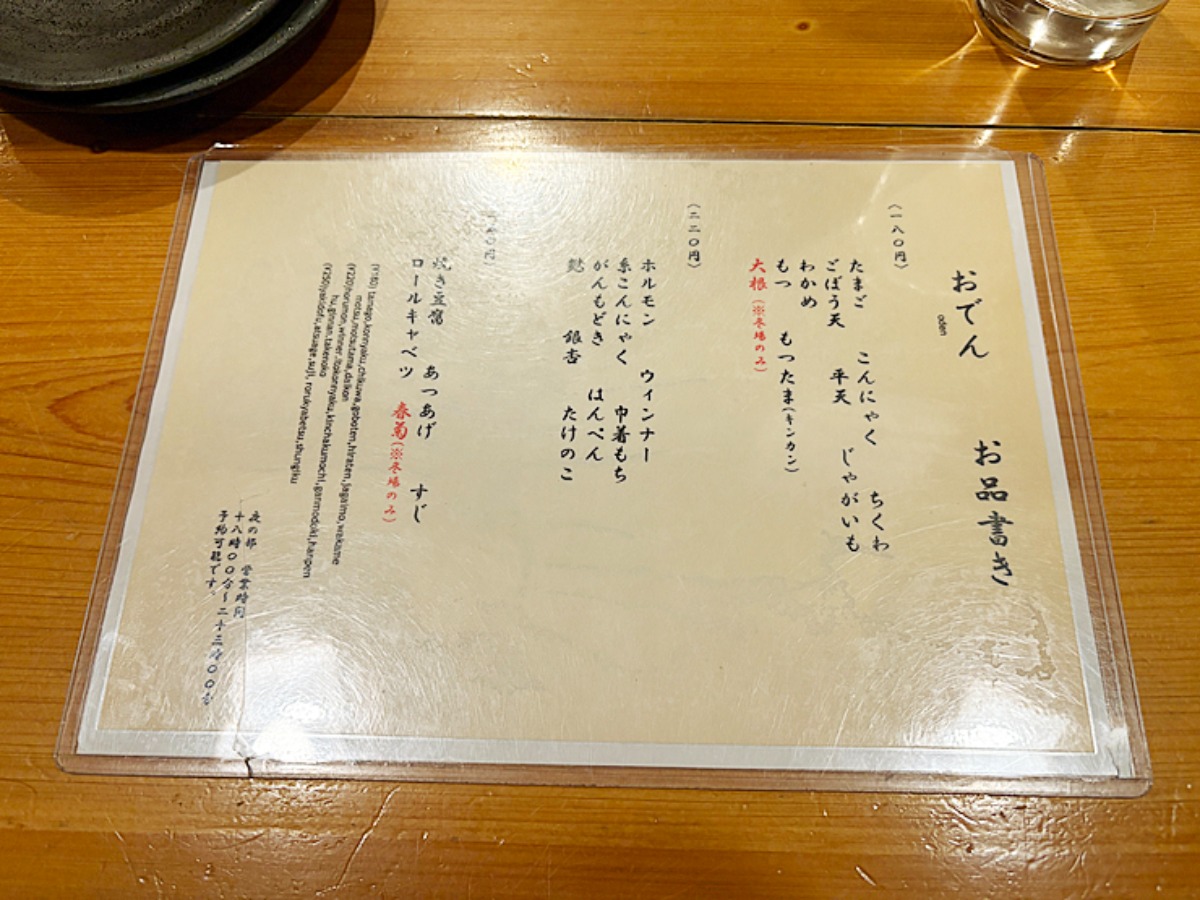 おでん お品書き
oden
(一八〇円)
たまご こんにゃく ちくわ
ごぼう天 平天 じゃがいも
わかめ
もつ もつたま(キンカン)
大根(※冬場のみ)
(二二〇円)
ホルモン ウィンナー
糸こんにゃく 巾着もち
がんもどき はんぺん
麩 銀杏 たけのこ
焼き豆腐 あつあげ すじ
ロールキャベツ 春菊(※冬場のみ)
(¥180) tamago,konnyaku,chikuwa,goboten,hiraten,jagaimo,wakame
motsu,motsutama,daikon
(¥220)horumon,winner,itokonnyaku,kinchakumochi,ganmodoki,hanpen
hu,ginnan,takenoko
(¥250)yakidofu,atsuage,suji, rorukyabetsu,shungiku
夜の部 営業時間
十八時〇〇分~二十三時〇〇分
予約可能です。